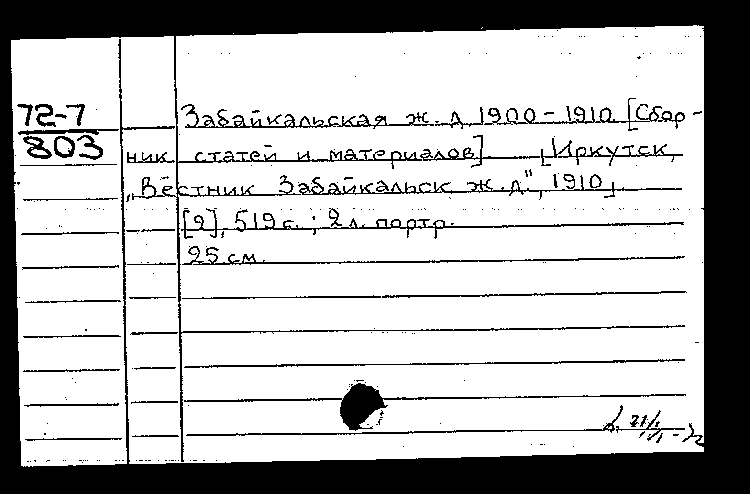 72-7
803
Забайкальская ж. д. 1900-1910 [Сбор-
ник статей и материалов]. [Иркутск,
„Вестник Забайкальск. ж. д.", 1910].
[2], 519 с.; 2 л. портр.
25 см.